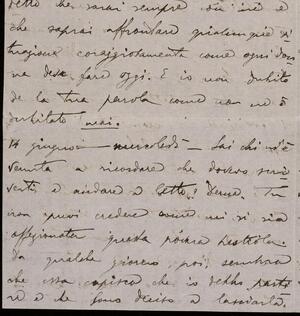 detto che sarai sempre
che saprai affrontare qualunque
coraggiosamente come ogni don
na deve fare oggi. E io non dubito
de la tua parola come non ne ò
dubitato mai.
14 giugno — mercoledì — Sai chi m'è
venuta a ricordare che dovevo scri
verti e andare a letto.. Tu
non puoi credere come mi si sia
affezionata questa povera bestiola.
Da qualche giorno poi, sembra
che essa capisca che io debbo parti
re e che sono deciso a lasciarla.